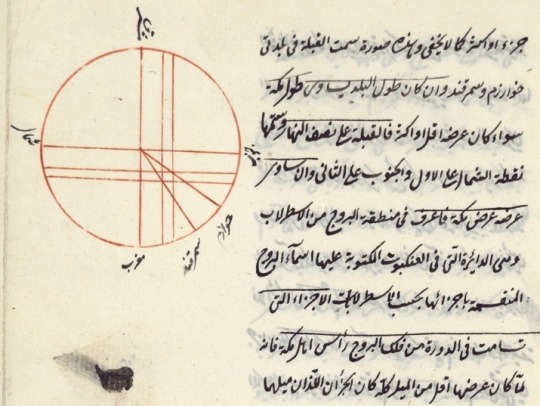 جزء او اكثر كما لا يخفى وهذه صورة سمت القبلة فى بلدتى
خوارزم وسمرقند وان كان طول البلد يساوى طول مكة
سواء كان عرضه اقل او اكثر فالقبلة على نصف النهار وسمتها
نقطة الشمال على الاول والجنوب على الثانى وان ساوى
عرضه عرض مكة فاعرف فى منطقة البروج من الاسطرلاب
وهى الدايرة التى فى العنكبوت المكتوبة عليها اسماء البروج
المنقسمة باجزائها بحسب الاسطرلابات الاجزاء التى
تسامت فى الدورة من فلك البروج رأس اهل مكة فانه
لما كان عرضها اقل من الميل كله كان الجزآن اللذان ميلها
شمال
جنوب
خوارزم
سمرقند
مغرب